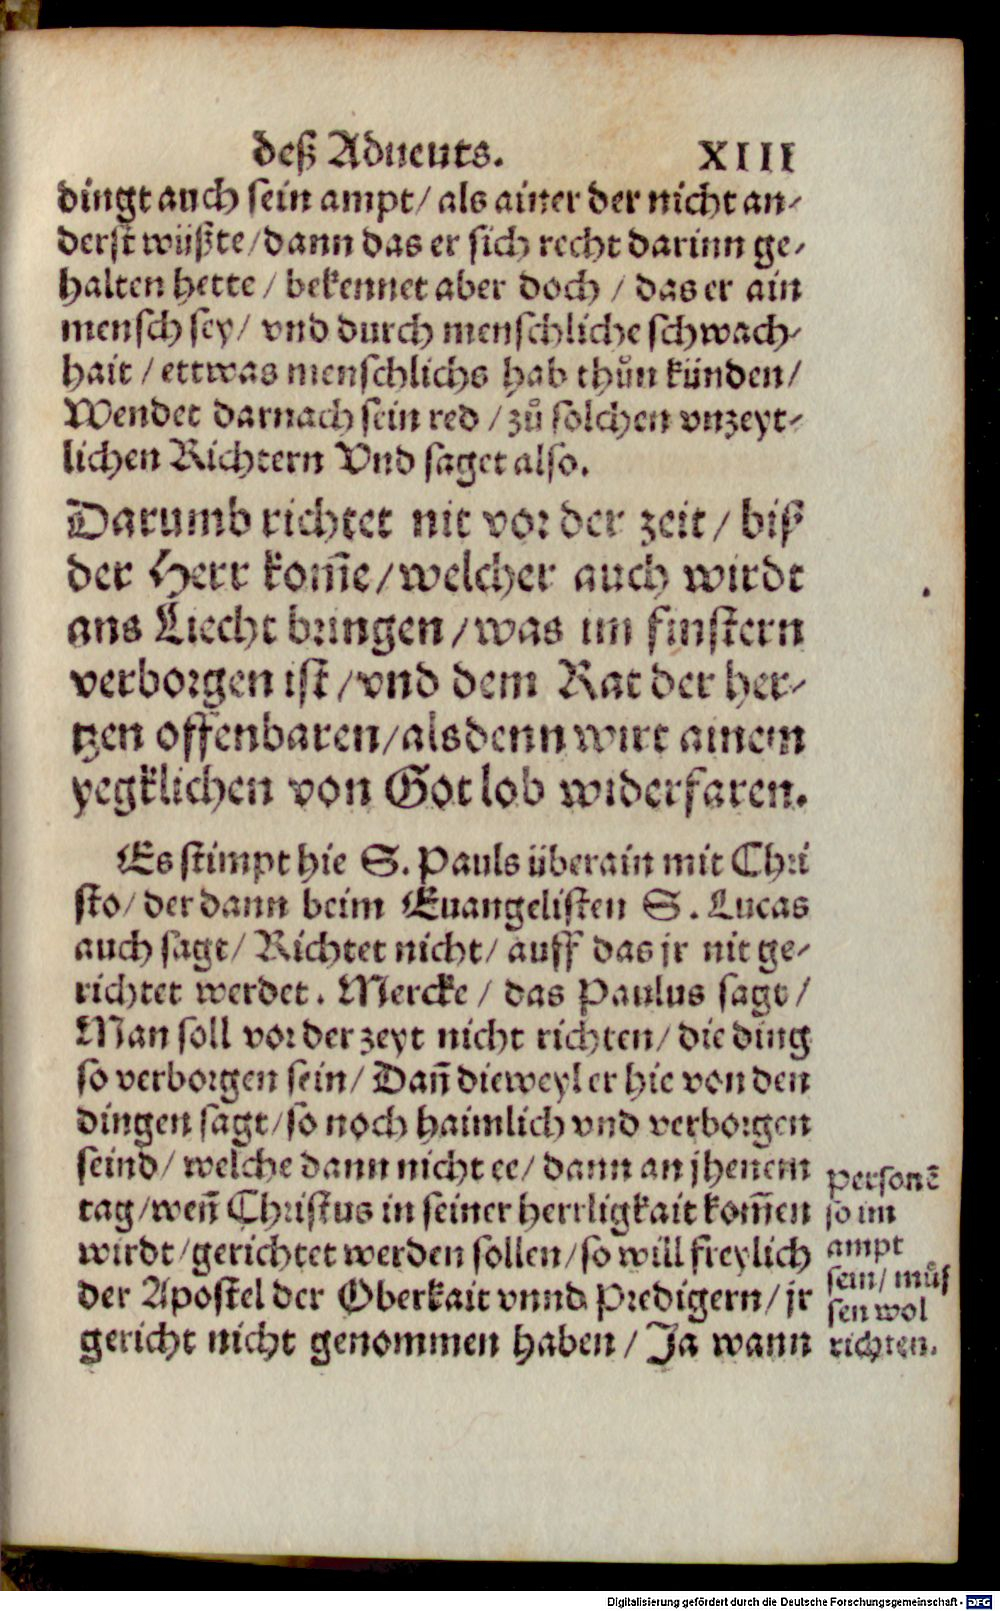 deß Aduents. XIII
dingt auch sein ampt/ als ainer der nicht an-
derst wüßte/dann das er sich recht darinn ge-
halten hette / bekennet aber doch / das er ain
mensch sey/ vnd durch menschliche schwach-
hait / ettwas menschlichs hab thůn künden/
Wendet darnach sein red / zů solchen vnzeyt-
lichen Richtern Vnd saget also.
Darumb richtet nit vor der zeit / biß
der Herr kom̃e/welcher auch wirdt
ans Liecht bringen /was im finstern
verborgen ist /vnd dem Rat der her-
tzen offenbaren/alsdenn wirt ainem
yegklichen von Got lob widerfaren.
Es stimpt hie S. Pauls überain mit Chri
sto/ der dann beim Euangelisten S. Lucas
auch sagt/ Richtet nicht/ auff das jr nit ge-
richtet werdet. Mercke / das Paulus sagt/
Man soll vor der zeyt nicht richten/ die ding
so verborgen sein/ Dañ dieweyl er hie von den
dingen sagt/so noch haimlich vnd verborgen
seind/ welche dann nicht ee/ dann an jhenem
tag/weñ Christus in seiner herrligkait kom̃en
wirdt/gerichtet werden sollen/so will freylich
der Apostel der Oberkait vnnd Predigern/ jr
gericht nicht genommen haben / Ja wann
Personẽ
so im
ampt
sein/ můs
sen wol
richten.
Digitalisierung gefördert durch die Deutsche Forschungsgemeinschaft - DFG